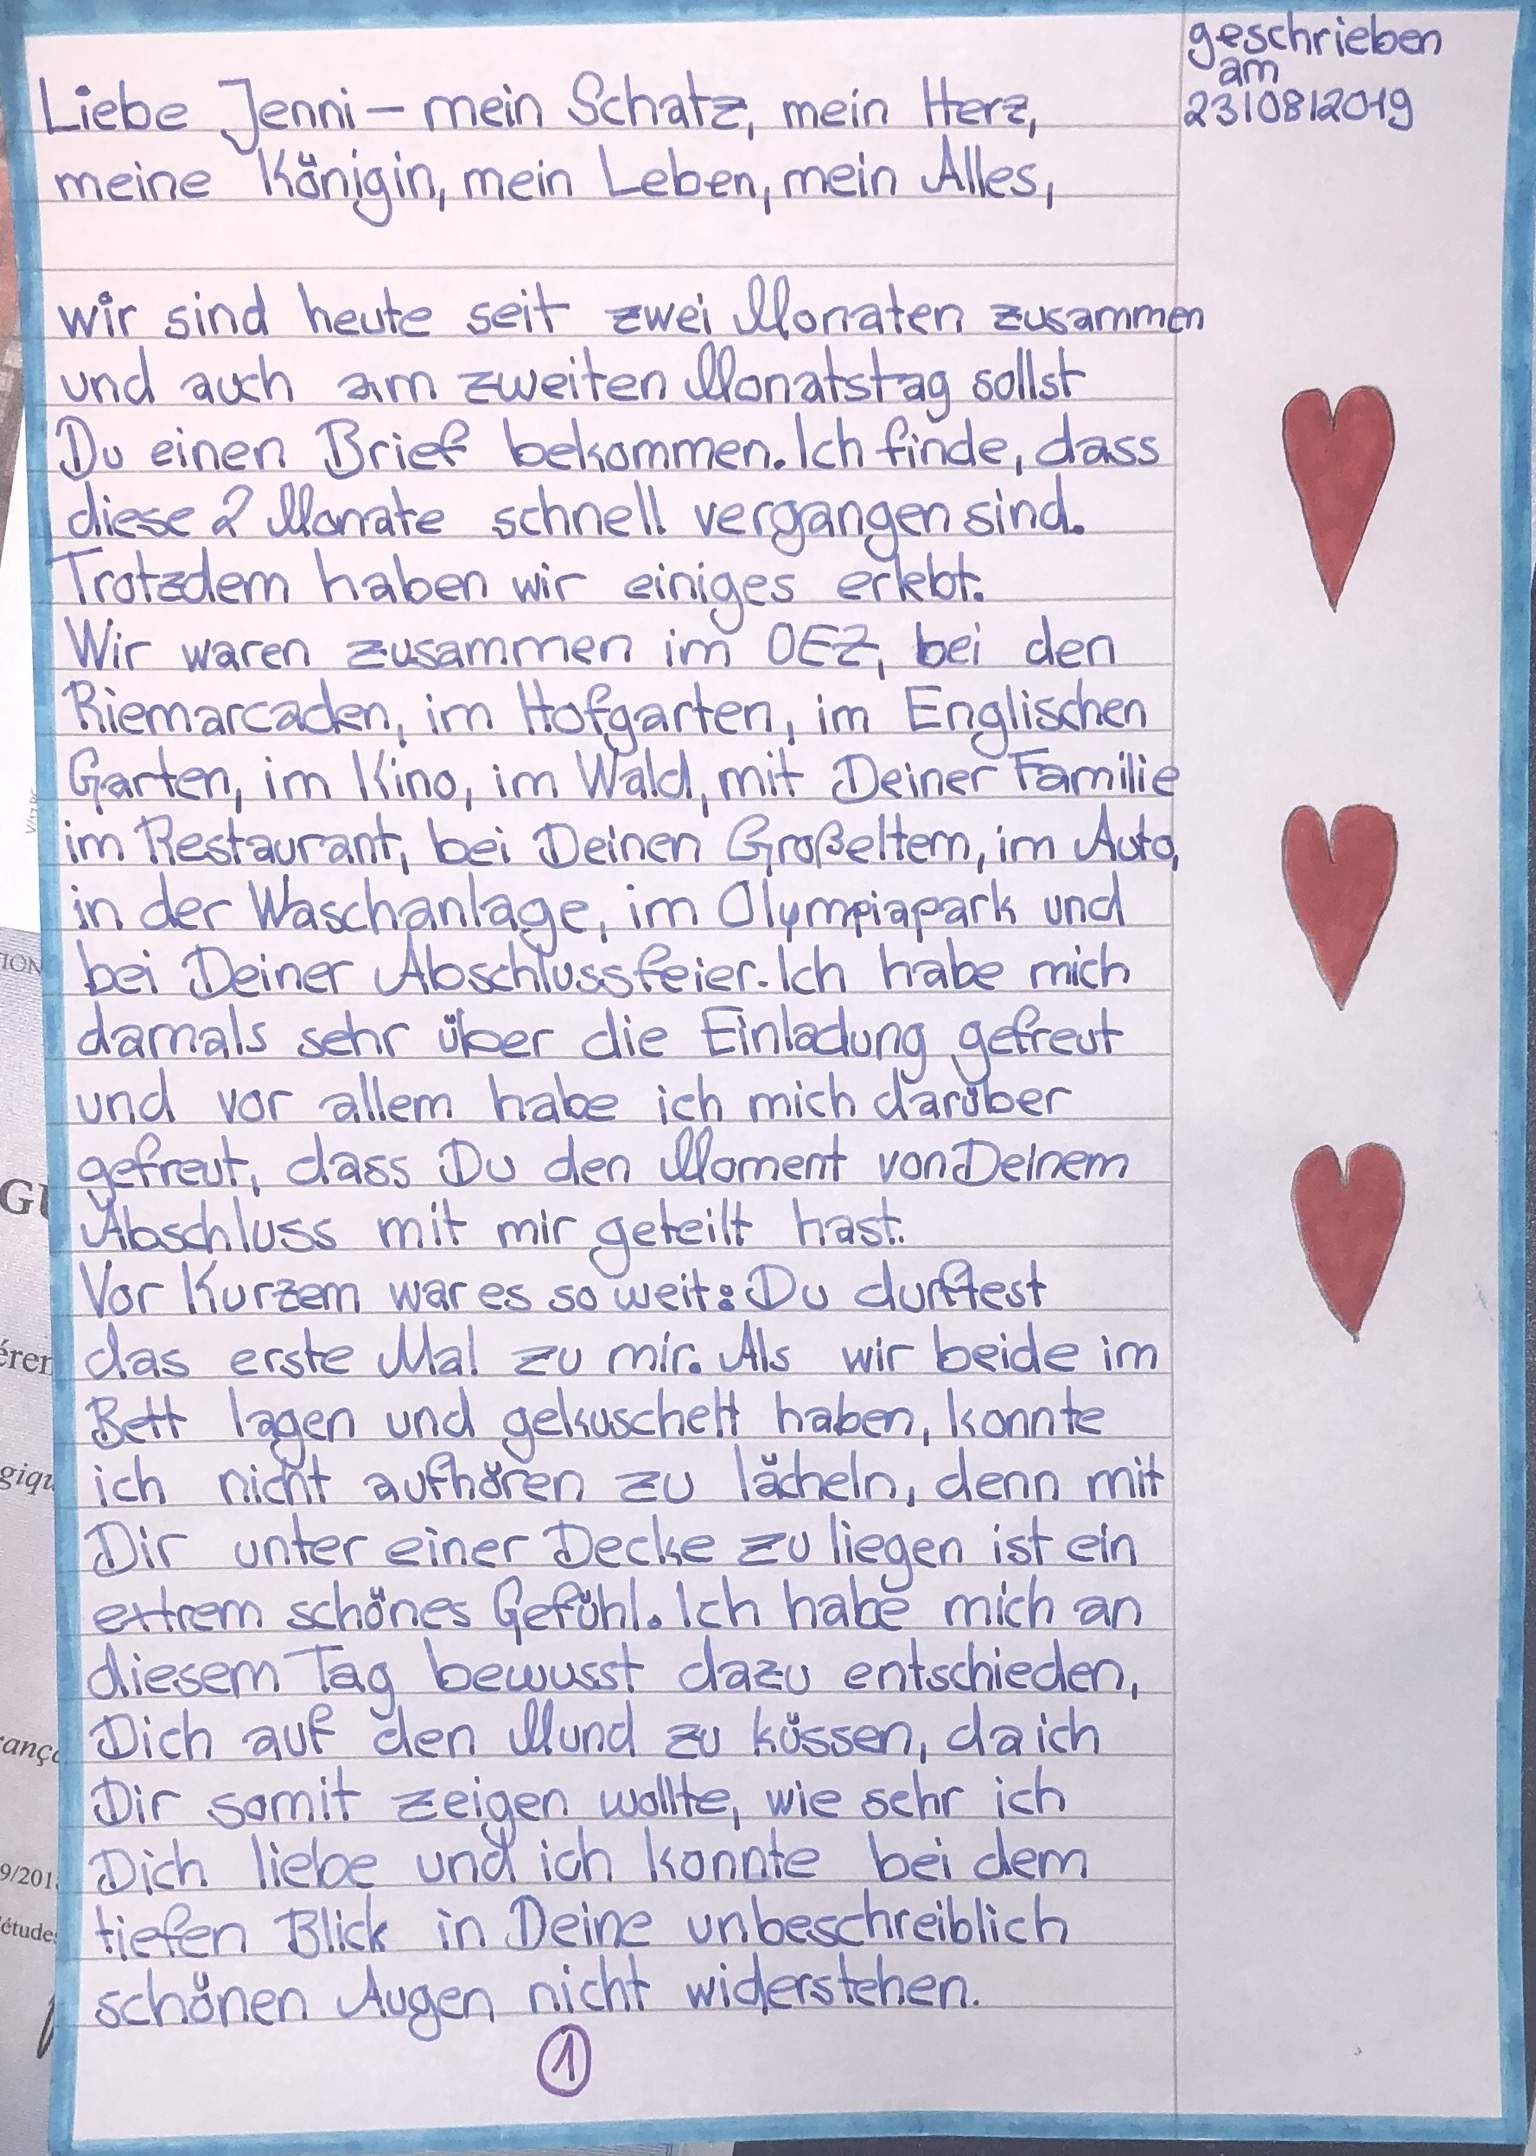 geschrieben
am
23/08/2019
Liebe Jenni – mein Schatz, mein Herz,
meine Königin, mein Leben, mein Alles,
wir sind heute seit zwei Monaten zusammen
und auch am zweiten Monatstag sollst
Du einen Brief bekommen. Ich finde, dass
diese 2 Monate schnell vergangen sind.
Trotzdem haben wir einiges erlebt.
Wir waren zusammen im OEZ, bei den
Riemarcaden, im Hofgarten, im Englischen
Garten, im Kino, im Wald, mit Deiner Familie
im Restaurant, bei Deinen Großeltern, im Auto,
in der Waschanlage, im Olympiapark und
bei Deiner Abschlussfeier. Ich habe mich
damals sehr über die Einladung gefreut
und vor allem habe ich mich darüber
gefreut, dass Du den Moment von Deinem
Abschluss mit mir geteilt hast.
Vor Kurzem war es so weit: Du durftest
das erste Mal zu mir. Als wir beide im
Bett lagen und gekuschelt haben, konnte
ich nicht aufhören zu lächeln, denn mit
Dir unter einer Decke zu liegen ist ein
extrem schönes Gefühl. Ich habe mich an
diesem Tag bewusst dazu entschieden,
Dich auf den Mund zu küssen, da ich
Dir somit zeigen wollte, wie sehr ich
Dich liebe und ich konnte bei dem
tiefen Blick in Deine unbeschreiblich
schönen Augen nicht widerstehen.
1